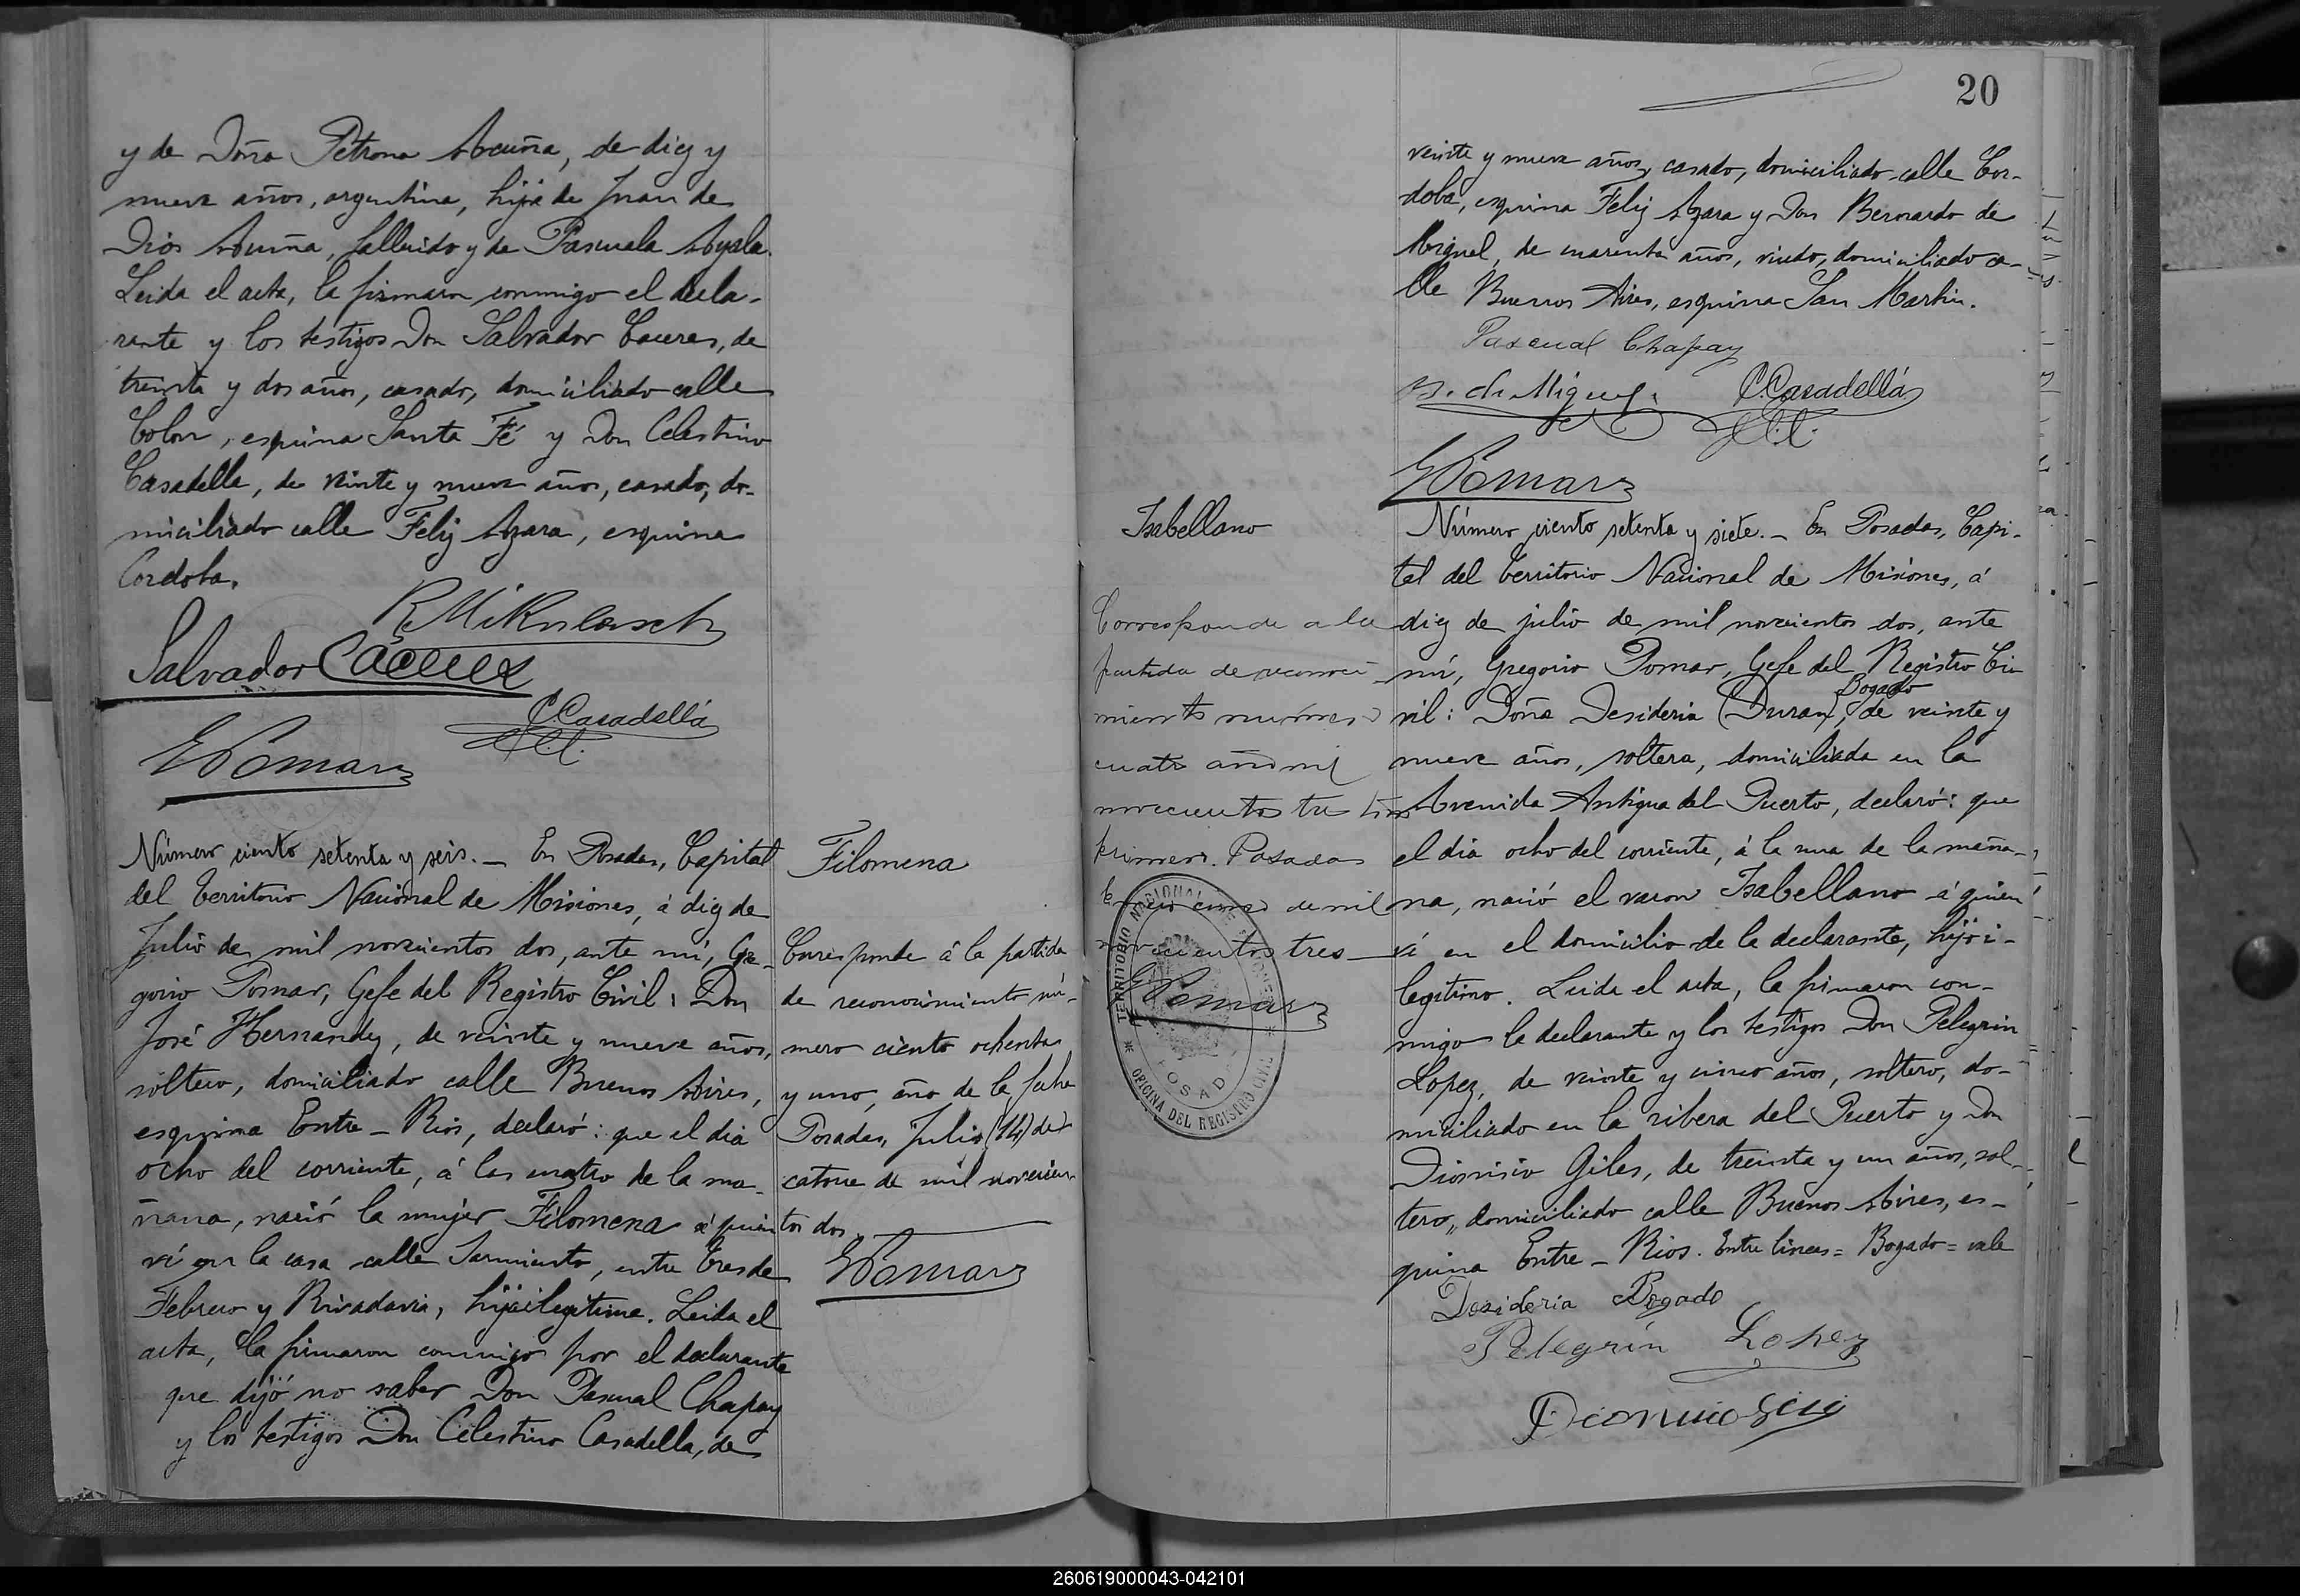 y de Doña Petrona Acuña, de diez y
nueve años, argentina, hija de Juan de
Dios Acuña, fallecido y de Pascuala Ayala.
Leida el acta, la firmaron conmigo el decla-
rante y los testigos Don Salvador Caceres, de
treinta y dos años, casado, domiciliado calle
Colon, esquina Santa Fé y Don Celestino
Casadella, de veinte y nueve años, casado, do-
miciliado calle Feliz Azara, esquina
Cordoba.
R Mikulasch
Salvador Caceres
C. Casadellá
G Pomar
Número ciento setenta y seis. — En Posadas, Capital
del Territorio Nacional de Misiones, á diez de
Julio de mil novecientos dos, ante mí, Gre-
gorio Pomar, Gefe del Registro Civil: Don
José Hernandez, de veinte y nueve años,
soltero, domiciliado calle Buenos Aires,
esquina Entre-Rios, declaró: que el dia
ocho del corriente, á las cuatro de la ma-
ñana, nació la mujer Filomena á quien
ví en la casa calle Sarmiento, entre Tres de
Febrero y Rivadavia, hija ilegitima. Leida el
acta, la firmaron conmigo por el declarante
que dijó no saber Don Pascual Chapay
y los testigos Don Celestino Casadella, de
Filomena
Corresponde á la partida
de reconocimiento nú-
mero ciento ochenta
y uno, año de la fecha
Posadas, Julio (14) de
catorce de mil novecien-
tos dos.
G Pomar
20
veinte y nueve años, casado, domiciliado calle Cor-
doba, esquina Feliz Azara y Don Bernardo de
Miguel, de cuarenta años, viudo, domiciliado ca-
lle Buenos Aires, esquina San Martin.
Pascual Chapay
B. de Miguel
C. Casadellá
G Pomar
Isabellano
Corresponde a la
partida de reconoci-
miento número
cuatro año mil
novecientos tres tomo
primero. Posadas
Enero cinco de mil
novecientos tres
G Pomar
TERRITORIO NACIONAL DE MISIONES
POSADAS
OFICINA DEL REGISTRO CIVIL
Número ciento setenta y siete. — En Posadas, Capi-
tal del Territorio Nacional de Misiones, á
diez de julio de mil novecientos dos, ante
mí, Gregorio Pomar, Gefe del Registro Ci-
Bogado
vil: Doña Desideria (Duran), de veinte y
nueve años, soltera, domiciliada en la
Avenida Antigua del Puerto, declaró: que
el dia ocho del corriente, á la una de la maña-
na, nació el varon Isabellano á quien
ví en el domicilio de la declarante, hijo i-
legitimo. Leida el acta, la firmaron con-
migo la declarante y los testigos Don Pelegrin
Lopez, de veinte y cinco años, soltero, do-
miciliado en la ribera del Puerto y Don
Dionisio Giles, de treinta y un años, sol-
tero, domiciliado calle Buenos Aires, es-
quina Entre-Rios. Entre lineas = Bogado = vale
Desideria Bogado
Pelegrín Lopez
Dionicio Giles
260619000043-042101